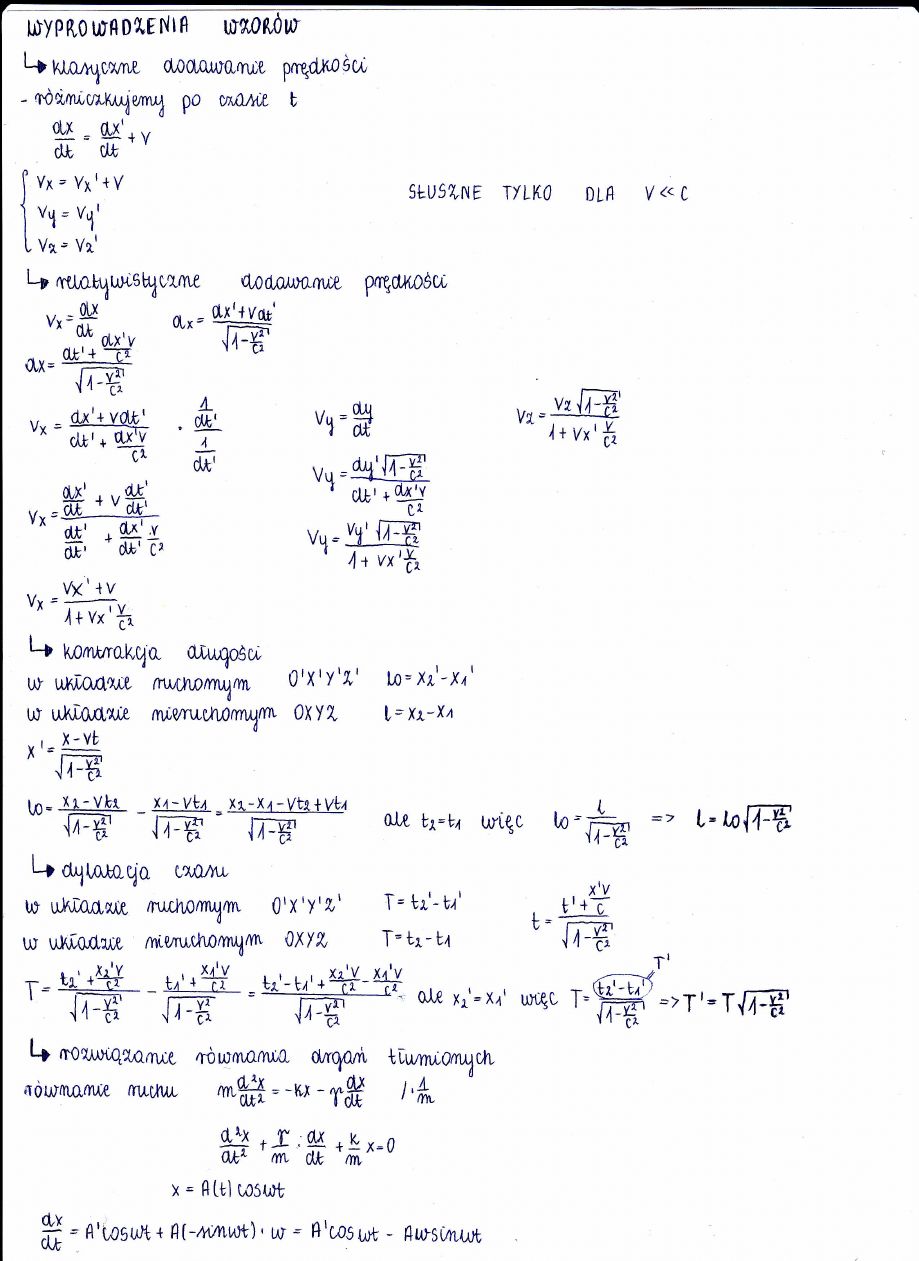 WYPROWADZENIA WZORÓW
↳ klasyczne dodawanie prędkości
- różniczkujemy po czasie t
dx/dt = dx'/dt + V
Vx = Vx' + V
SŁUSZNE TYLKO DLA V << C
Vy = Vy'
Vz = Vz'
↳ relatywistyczne dodawanie prędkości
Vx = dx/dt    dx = (dx' + Vdt')/√(1 - V²/C²)
dx = (dt' + dx'V/C²)/√(1 - V²/C²)
Vx = (dx' + Vdt')/(dt' + dx'V/C²) · (1/dt')/(1/dt')
Vx = (dx'/dt' + V dt'/dt')/(dt'/dt' + dx'/dt' · V/C²)
Vx = (Vx' + V)/(1 + Vx' V/C²)
Vy = dy/dt
Vy = (dy'√(1 - V²/C²))/(dt' + dx'V/C²)
Vy = (Vy' √(1 - V²/C²))/(1 + Vx' V/C²)
Vz = (Vz √(1 - V²/C²))/(1 + Vx' V/C²)
↳ kontrakcja długości
w układzie ruchomym O'X'Y'Z' l0 = X2' - X1'
w układzie nieruchomym OXYZ l = X2 - X1
X' = (X - Vt)/√(1 - V²/C²)
l0 = (X2 - Vt2)/√(1 - V²/C²) - (X1 - Vt1)/√(1 - V²/C²) = (X2 - X1 - Vt2 + Vt1)/√(1 - V²/C²) ale t2 = t1 więc l0 = l/√(1 - V²/C²) => l = l0√(1 - V²/C²)
↳ dylatacja czasu
w układzie ruchomym O'X'Y'Z' T = t2' - t1'
w układzie nieruchomym OXYZ T = t2 - t1
t = (t' + X'V/C)/√(1 - V²/C²)
T = (t2' + X2'V/C²)/√(1 - V²/C²) - (t1' + X1'V/C²)/√(1 - V²/C²) = (t2' - t1' + X2'V/C² - X1'V/C²)/√(1 - V²/C²) ale X2' = X1' więc T = (t2' - t1')/√(1 - V²/C²) => T' = T√(1 - V²/C²)
T'
↳ rozwiązanie równania drgań tłumionych
równanie ruchu m d²x/dt² = -kx - γ dx/dt /· 1/m
d²x/dt² + γ/m · dx/dt + k/m x = 0
x = A(t) cosωt
dx/dt = A'cosωt + A(-sinωt) · ω = A'cosωt - Aωsinωt